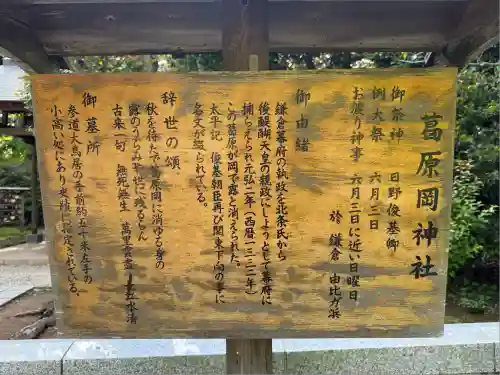 葛原岡神社
御祭神　日野俊基卿
例大祭　六月三日
お渡り神事　六月三日に近い日曜日
於　鎌倉　由比ガ浜
御由緒
鎌倉幕府の執政を北条氏から
後醍醐天皇の親政にしようとして幕府に
捕えられ元弘二年（西暦一三三二年）
この葛原が岡で露と消えられた。
太平記　俊基朝臣再び関東下向の事に
多々が綴られている。
辞世の頌
秋を待たで葛原岡に消ゆる身の
露のうらみや世に残るらん
古来一句　無死無生　万里雲尽　長江水清
御墓所
参道大鳥居の手前約五十米左手の
小高い処にあり史蹟に指定されている。